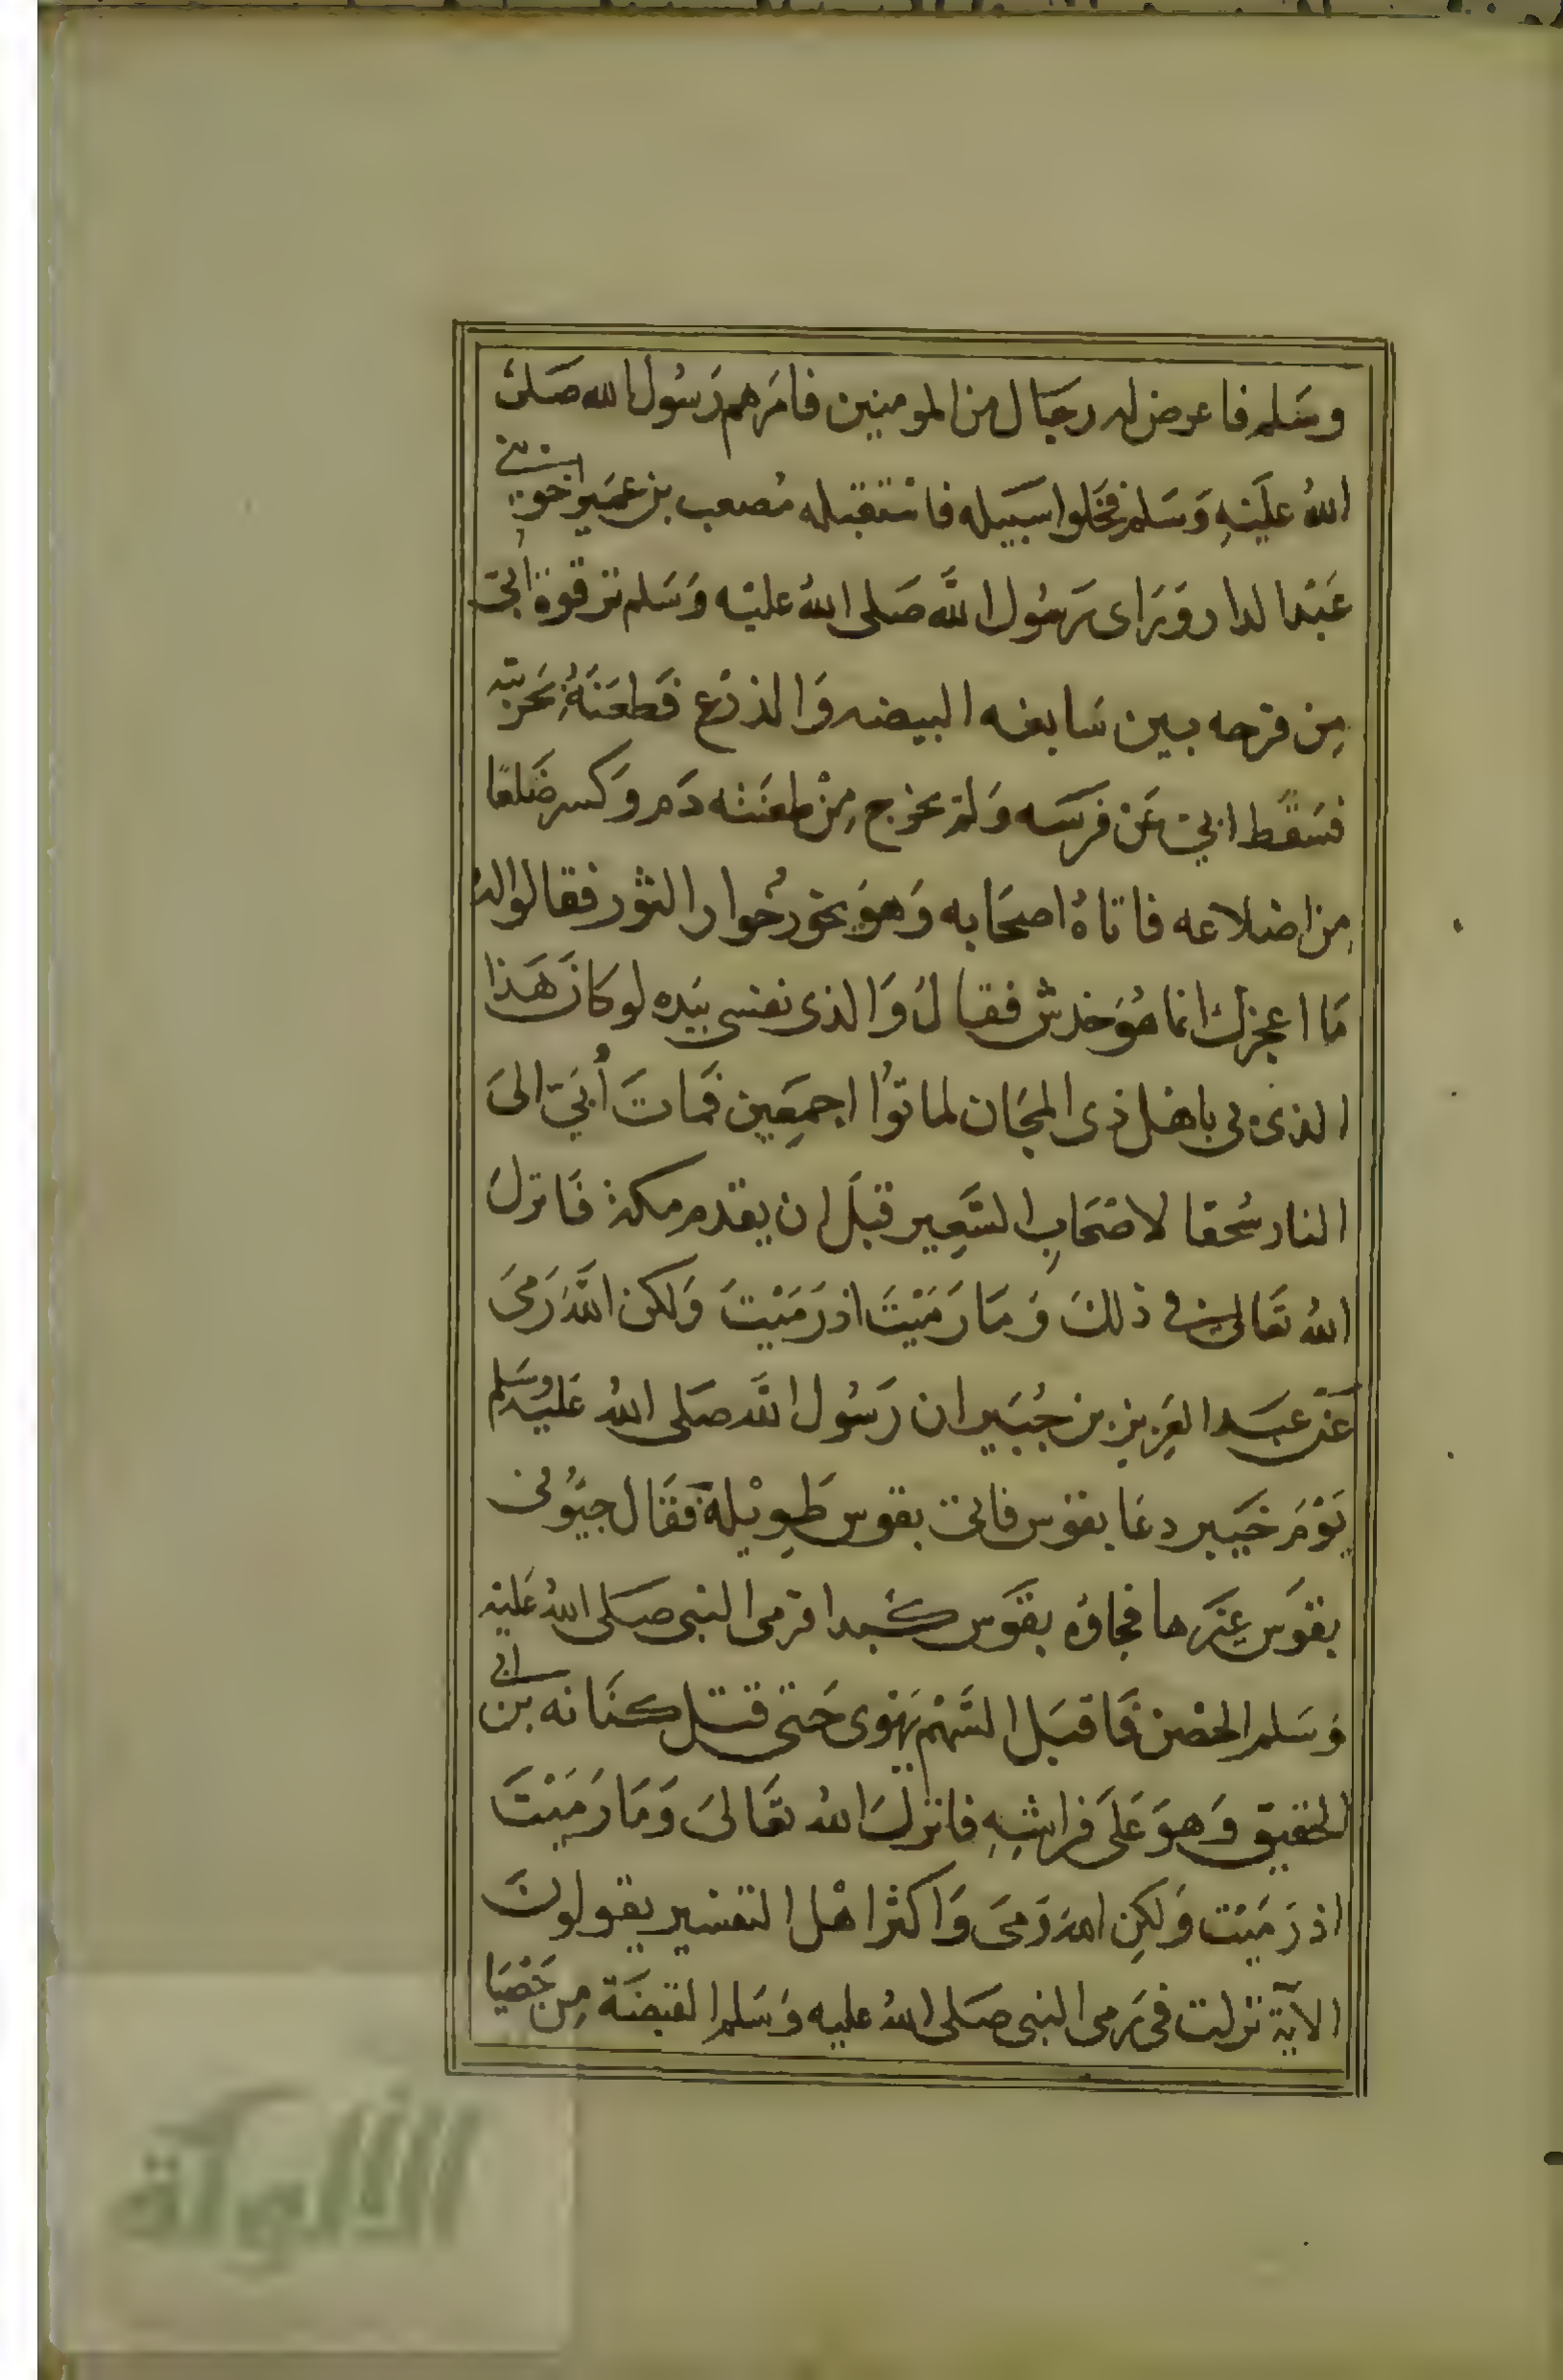 وسَلم فاعرض له رجال من المومنين فامَرهم رَسُول الله صَلى
اللهُ علَيْهِ وَسَلم فخلوا سبيله فاستقبله مُصعب بن عمَير اخو بنى
عَبْد الدار ورَاى رسُول الله صَلى اللهُ عليْه وَسَلم ترقوة أبىّ
مِن فرجه بين سَابغه البيضه وَالدرْع فَطعَنَهُ بحَربته
فسَقط ابىّ عَن فرسَه وَلم يخرج مِنْ طعنته دَم وكسر ضلعًا
مِن اضلاعه فاتاهُ اصحَابه وَهوَ يخور خُوار الثور فقالوا له
مَا اعجزك انما هُوَ خدش فقالَ وَالذى نفسى بيَده لو كانَ هَذا
الذى بى باهل ذى المجَان لماتوُا اجمعِين فمات أُبَىّ الىَ
النار سُحقا لاصْحَابِ السَّعِير قبلَ ان يقدم مكة فَانزلَ
اللهُ تعَالىَ فى ذلكَ وَمَا رَمَيْتَ اذ رَمَيْتَ وَلكن اللهَ رَمىَ
عَنْ عبَد العَزِيز بن جُبَير ان رَسُول اللهَ صَلى اللهُ عَليْه وسَلم
يَوْمَ خَيبر دعَا بقوس فاتىَ بقوس طَوِيْلة فقَال جيَوُنى
بقَوس غيَرها فجاؤه بقَوس كبدا فرمى النبى صَلى اللهُ عَليْه
وَسَلم الحصْن فَاقبَل السَّهْم يَهْوى حَتى قتل كنَانه بن ابى
الحقيق وَهوَ عَلَى فراشِهِ فانزلَ اللهُ تعَالىَ وَمَا رَمَيْتَ
اذ رَمَيْت وَلكِن اللهَ رَمىَ وَاكثر اهْل التفسير يقولونَ
الآية نزلت فى رمى النبى صَلى اللهُ عليه وَسَلم القبضَة مِن حَصْبَا
الألوكة